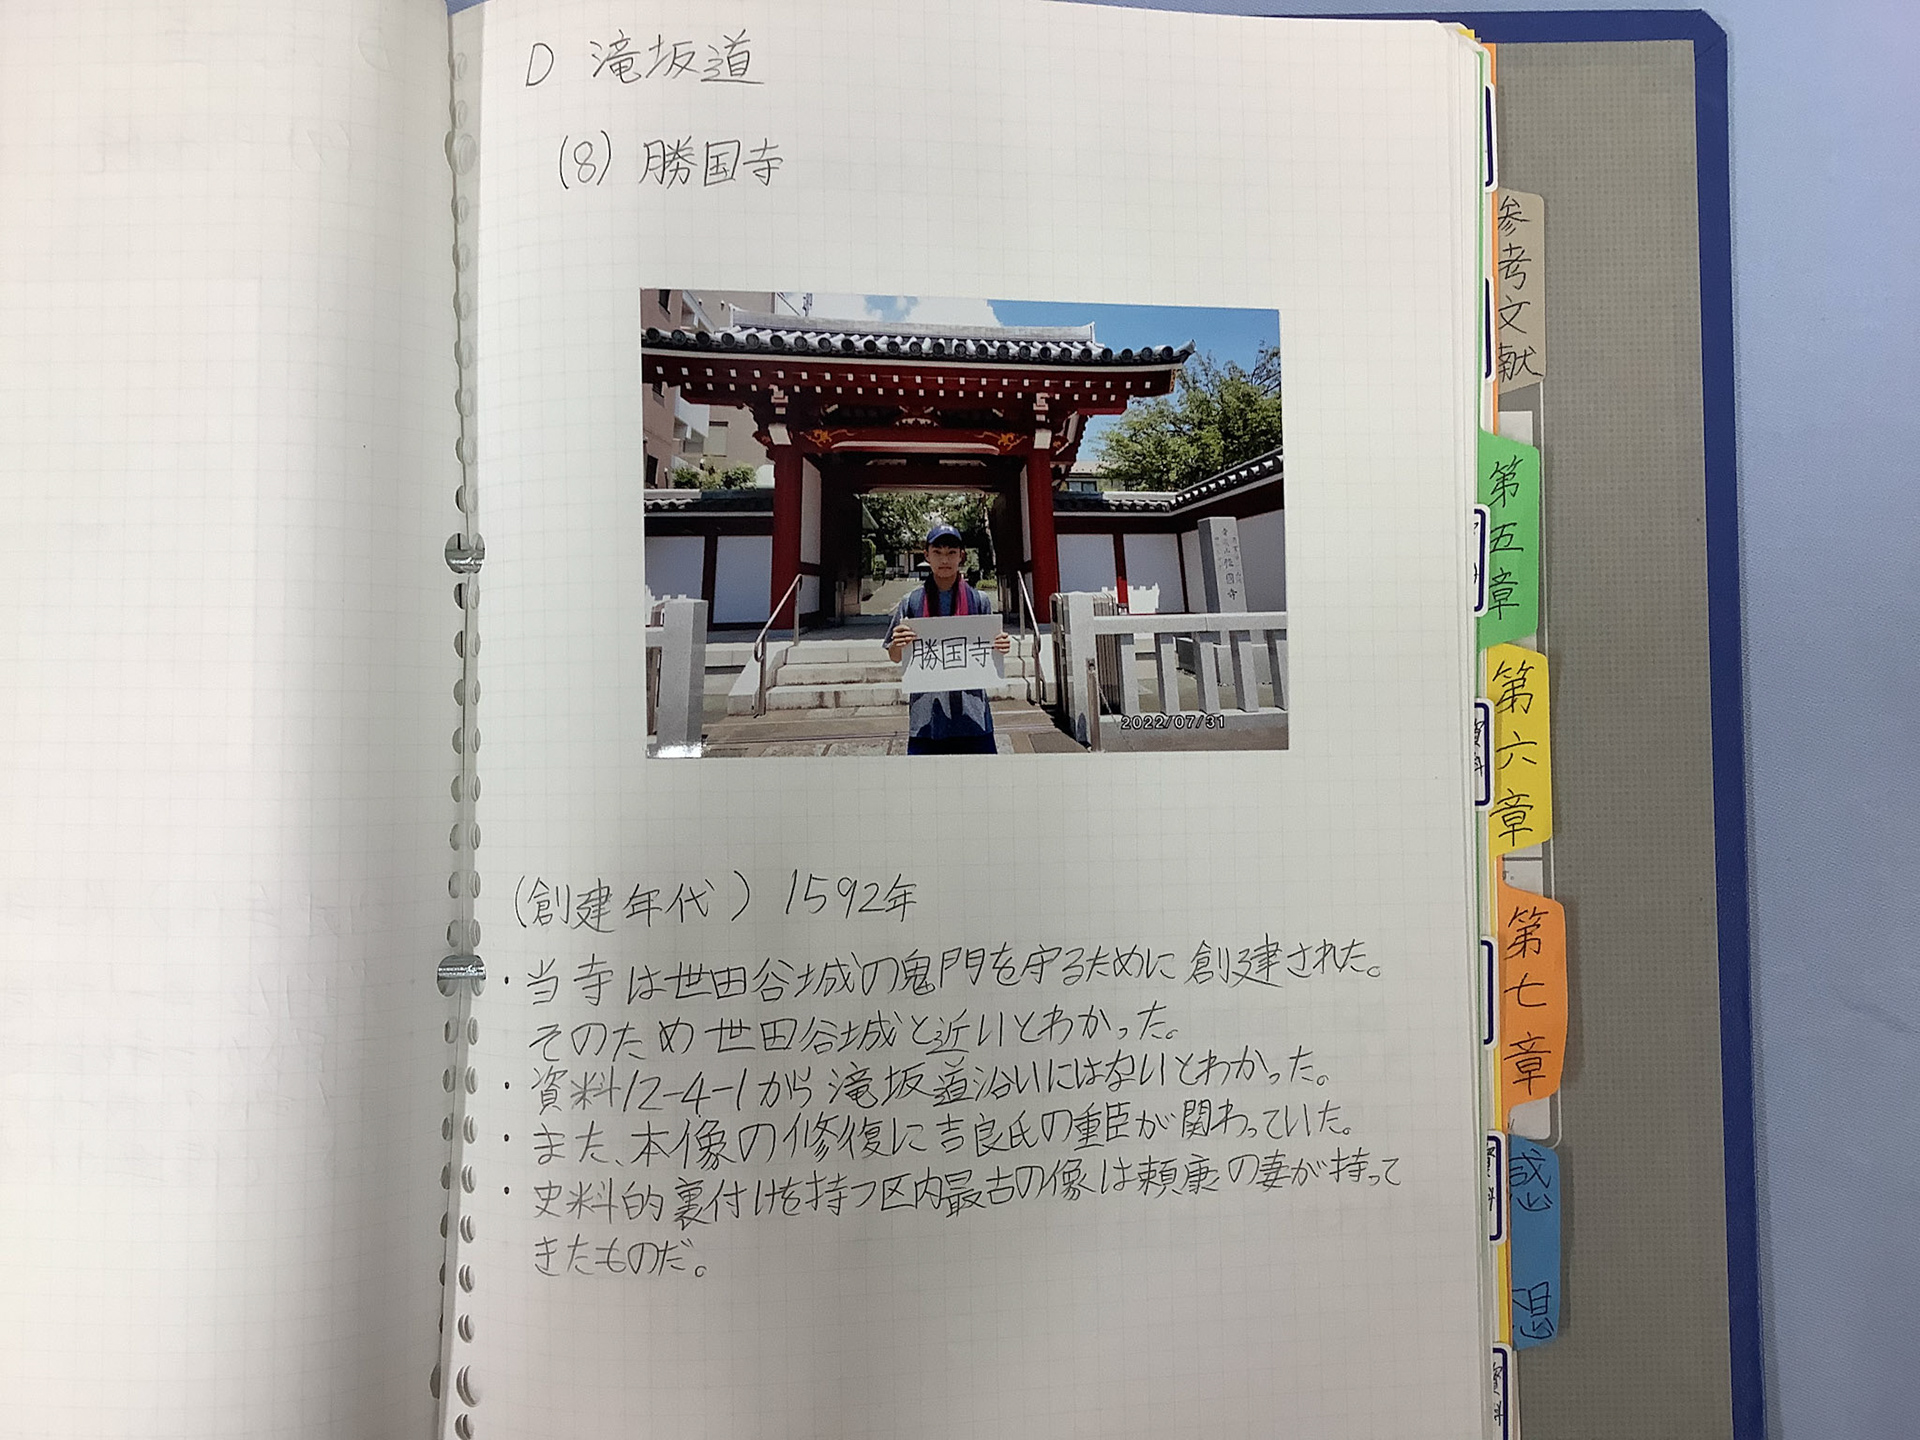 D 滝坂道
(8) 勝国寺
勝国寺
2022/07/31
(創建年代) 1592年
・当寺は世田谷城の鬼門を守るために創建された。
そのため世田谷城と近いとわかった。
・資料12-4-1から滝坂道沿いにはないとわかった。
・また、本像の修復に吉良氏の重臣が関わっていた。
・史料的裏付けを持つ区内最古の像は頼康の妻が持って
きたものだ。
参考文献
第五章
第六章
資料
第七章
感想
資料